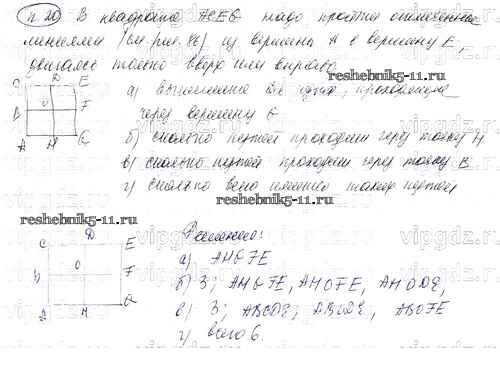 п. 20) В квадрате ACEG надо пройти
линиям (см. рис. 46) из вершины A в вершину E,
двигаясь только вверх или вправо
C D E
а) выпишите все пути, проходящие
через вершину G
B O F
б) сколько путей проходит через точку H
A H G
в) сколько путей проходит через точку B
г) сколько всего имеется таких путей
reshebnik5-11.ru
reshebnik5-11.ru
reshebnik5-11.ru
vipgdz.ru
Решение:
C D E
а) AHGFE
O
б) 3; AHGFE, AHOFE, AHODE,
B F
в) 3; ABCDE; ABODE, ABOFE
A H G
г) всего 6.
reshebnik5-11.ru